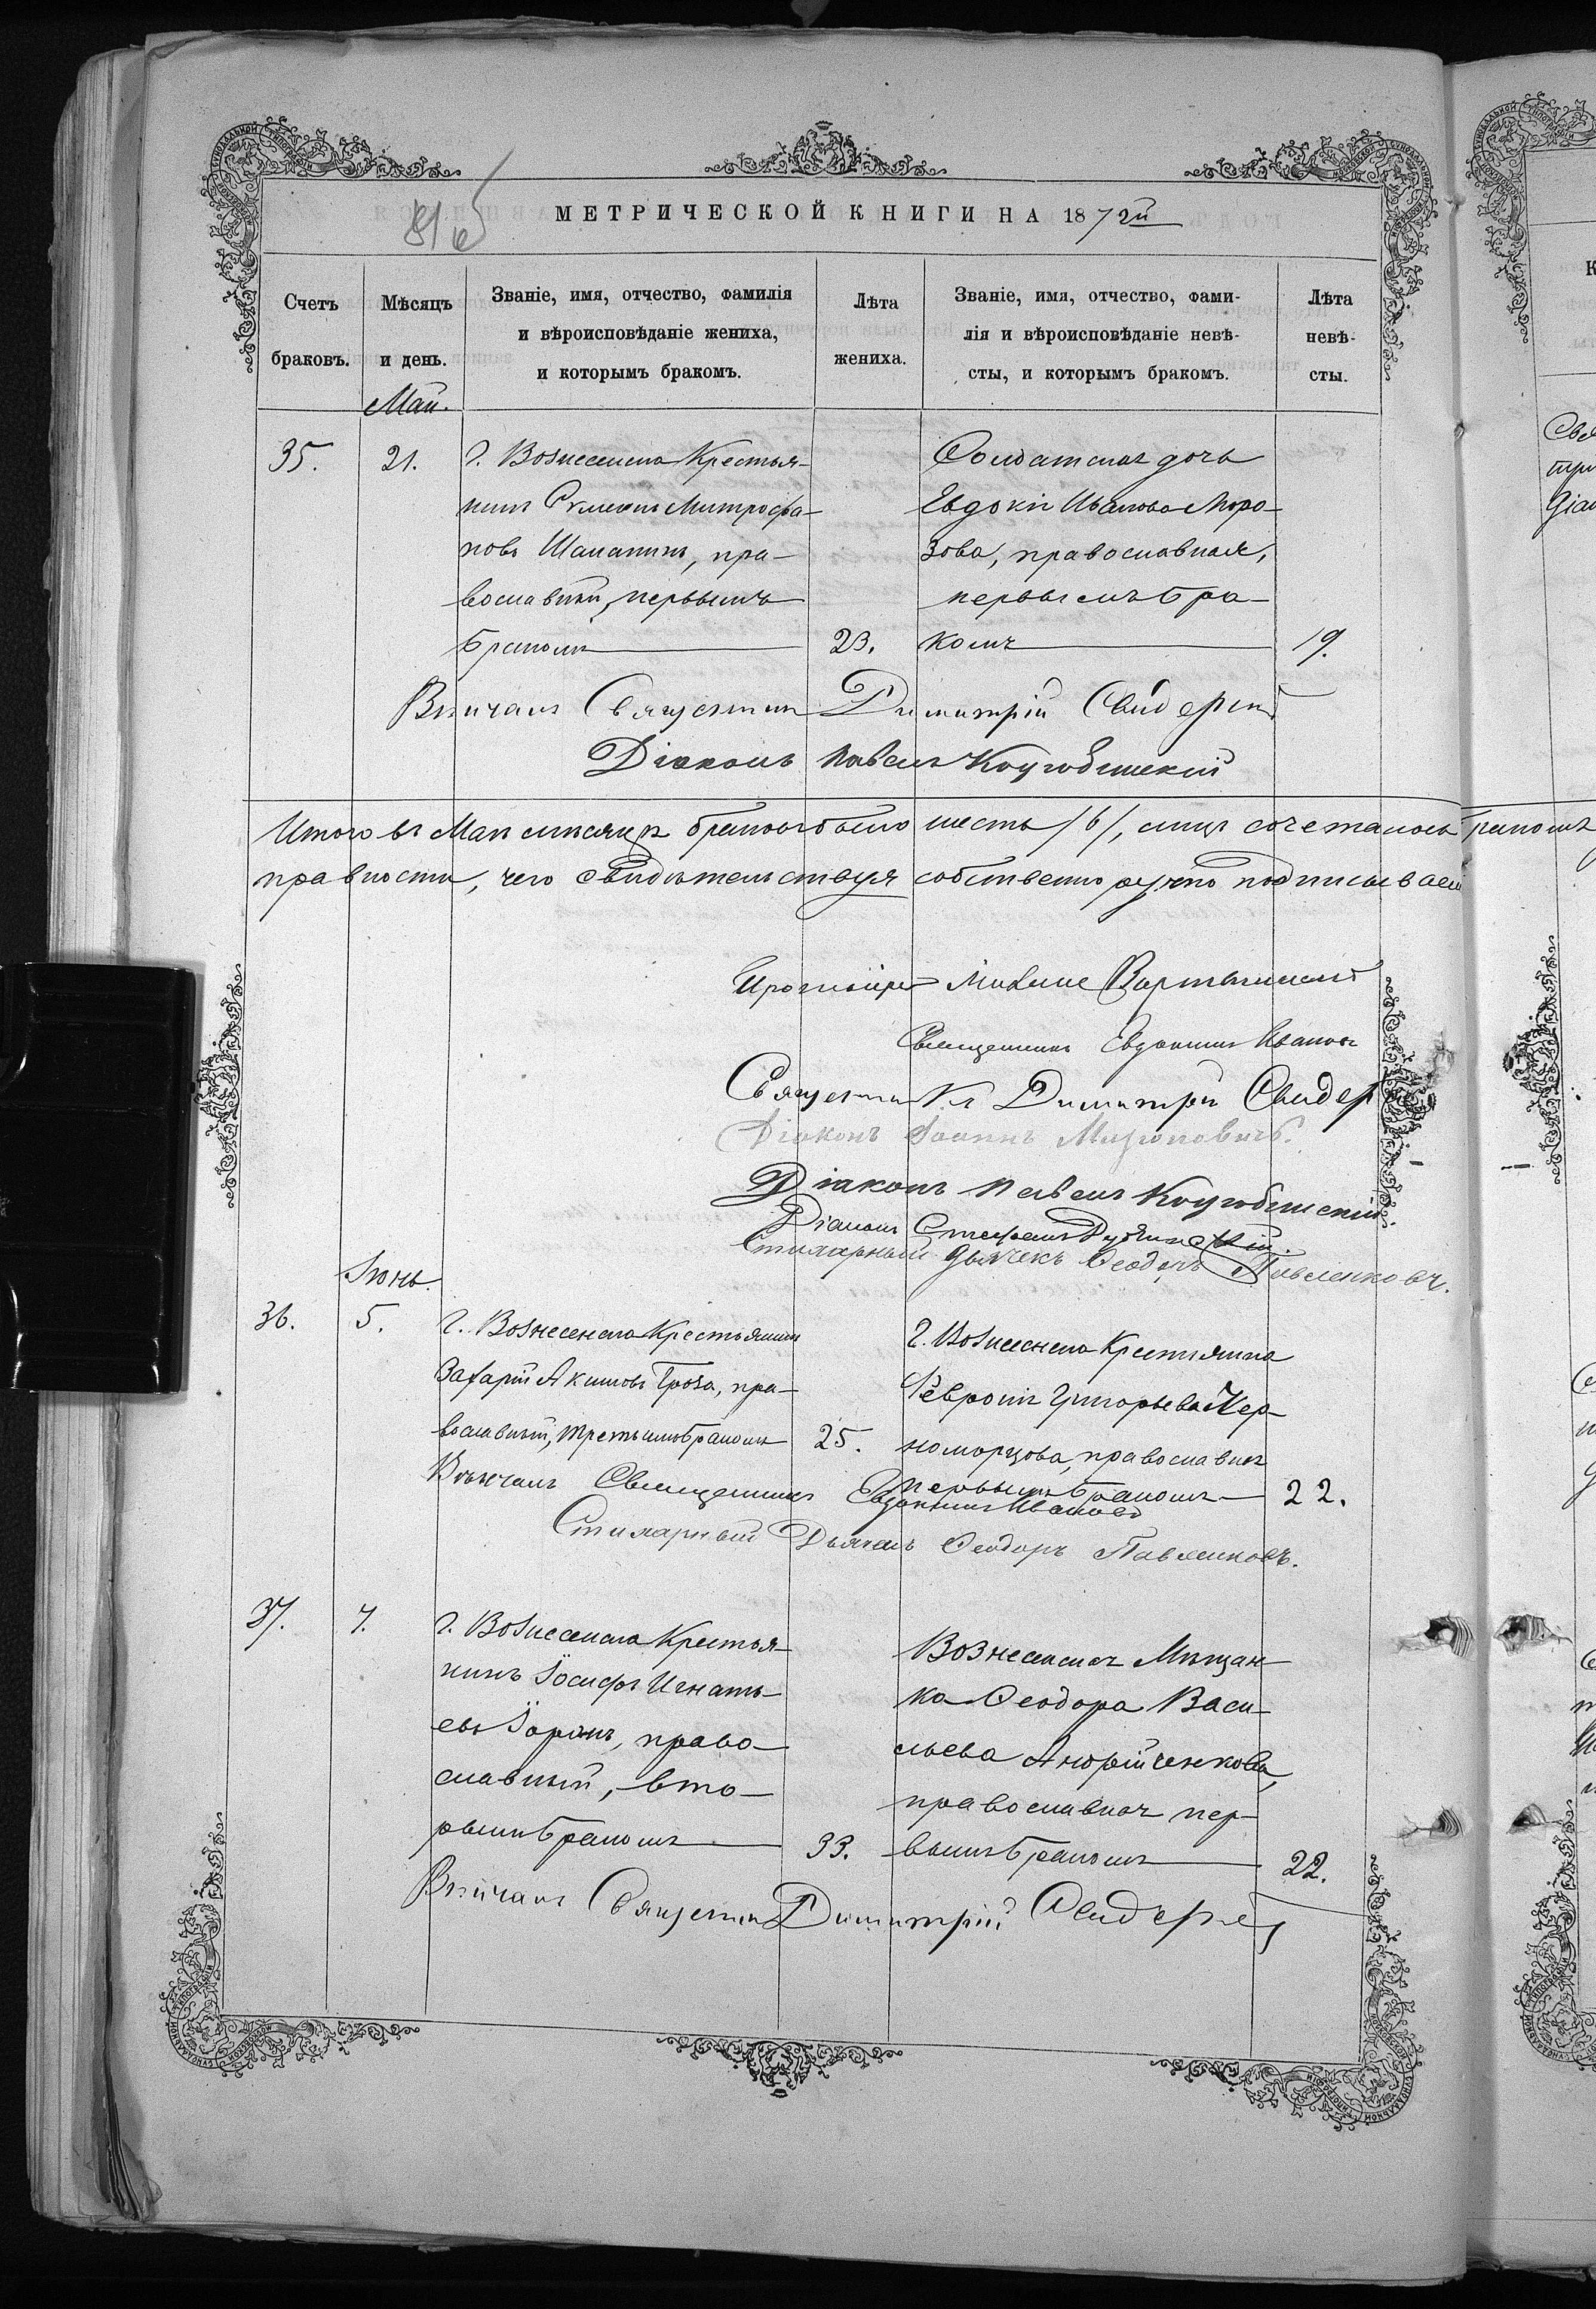 МЕТРИЧЕСКОЙ КНИГИ НА 1872й
Счетъ браковъ.
Мѣсяцъ и день.
Званіе, имя, отчество, фамилія
и вѣроисповѣданіе жениха,
и которымъ бракомъ.
Лѣта
жениха.
Званіе, имя, отчество, фами-
лія и вѣроисповѣданіе невѣ-
сты, и которымъ бракомъ.
Лѣта
невѣ-
сты.
Май.
35.
21.
г. Вознесенска Крестья-
нинъ Митрофа-
новъ, пра-
вославный, первымъ
бракомъ
23.
Солдатская дочь
Евдокія Иванова Моро-
зова, православная,
первымъ бра-
комъ
19.
Вѣнчалъ Священникъ Димитрій
Діаконъ Павелъ
Итого въ Маѣ мѣсяцѣ браковъ было шесть /6/, лицъ сочеталось
правности, чего свидѣтельствуя собственноручно подписываем
Протоіерей
Священникъ Евдокимъ Ивановъ
Священникъ Димитрій
Діаконъ Іоаннъ
Діаконъ Павелъ
Діаконъ Стефанъ
Стихарный Дьячекъ Ѳеодоръ Павленковъ.
Іюнь.
36.
5.
г. Вознесенска Крестьянинъ
Захарій Акимовъ Гроза, пра-
вославный, третьимъ бракомъ
25.
г. Вознесенска Крестьянка
Февронія Григорьева Чер-
номорцова, православная
первымъ бракомъ
22.
Вѣнчалъ Священникъ Евдокимъ Ивановъ
Стихарный Дьячекъ Ѳеодоръ Павленковъ.
37.
7.
г. Вознесенска Крестья-
нинъ Іосифъ Игнать-
евъ, право-
славный, вто-
рымъ бракомъ
33.
Вознесенская Мѣщан-
ка Ѳеодора Васи-
льева Андрійченкова,
православная пер-
вымъ бракомъ
22.
Вѣнчалъ Священникъ Димитрій